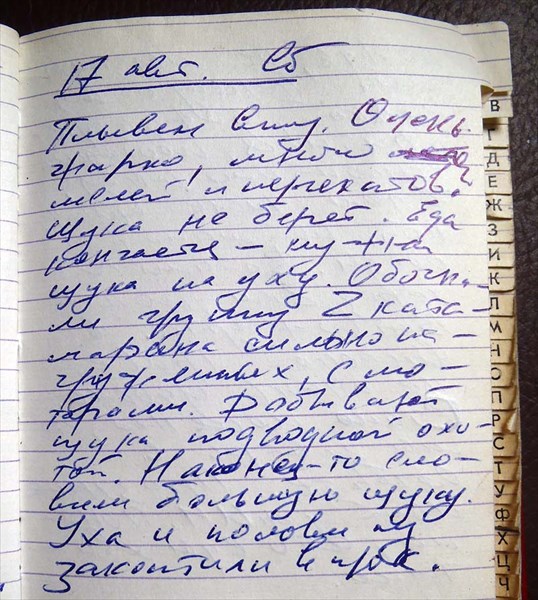 17 авг. Сб
Плывем вниз. Очень
жарко, много
мелей и перекатов.
Щука не берет. Еда
кончается – нужна
щука на уху. Обогна-
ли группу 2 ката-
марана сильно на-
груженных, с мо-
торами. Добывают
щука подводной охо-
той. Наконец-то сло-
вили большую щуку.
Уха и половину
закоптили впрок.
В
Г
Д
Е
Ж
З
И
К
Л
М
Н
О
П
Р
С
Т
У
Ф
Х
Ц
Ч